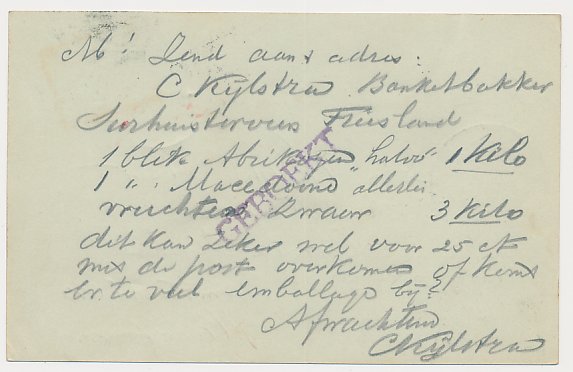 M! Zend aan adres:
C Kijlstra Banketbakker
Surhuisterveen Friesland
1 blik Abrikozen "halve" 1 Kilo
1 " Macedoine allerlei
vruchten zwaar 3 Kilo
dit kan zeker wel voor 25 ct
met de post overkomen of komt
er te veel emballage bij?
Afwachtend
C Kijlstra
GEBOEKT